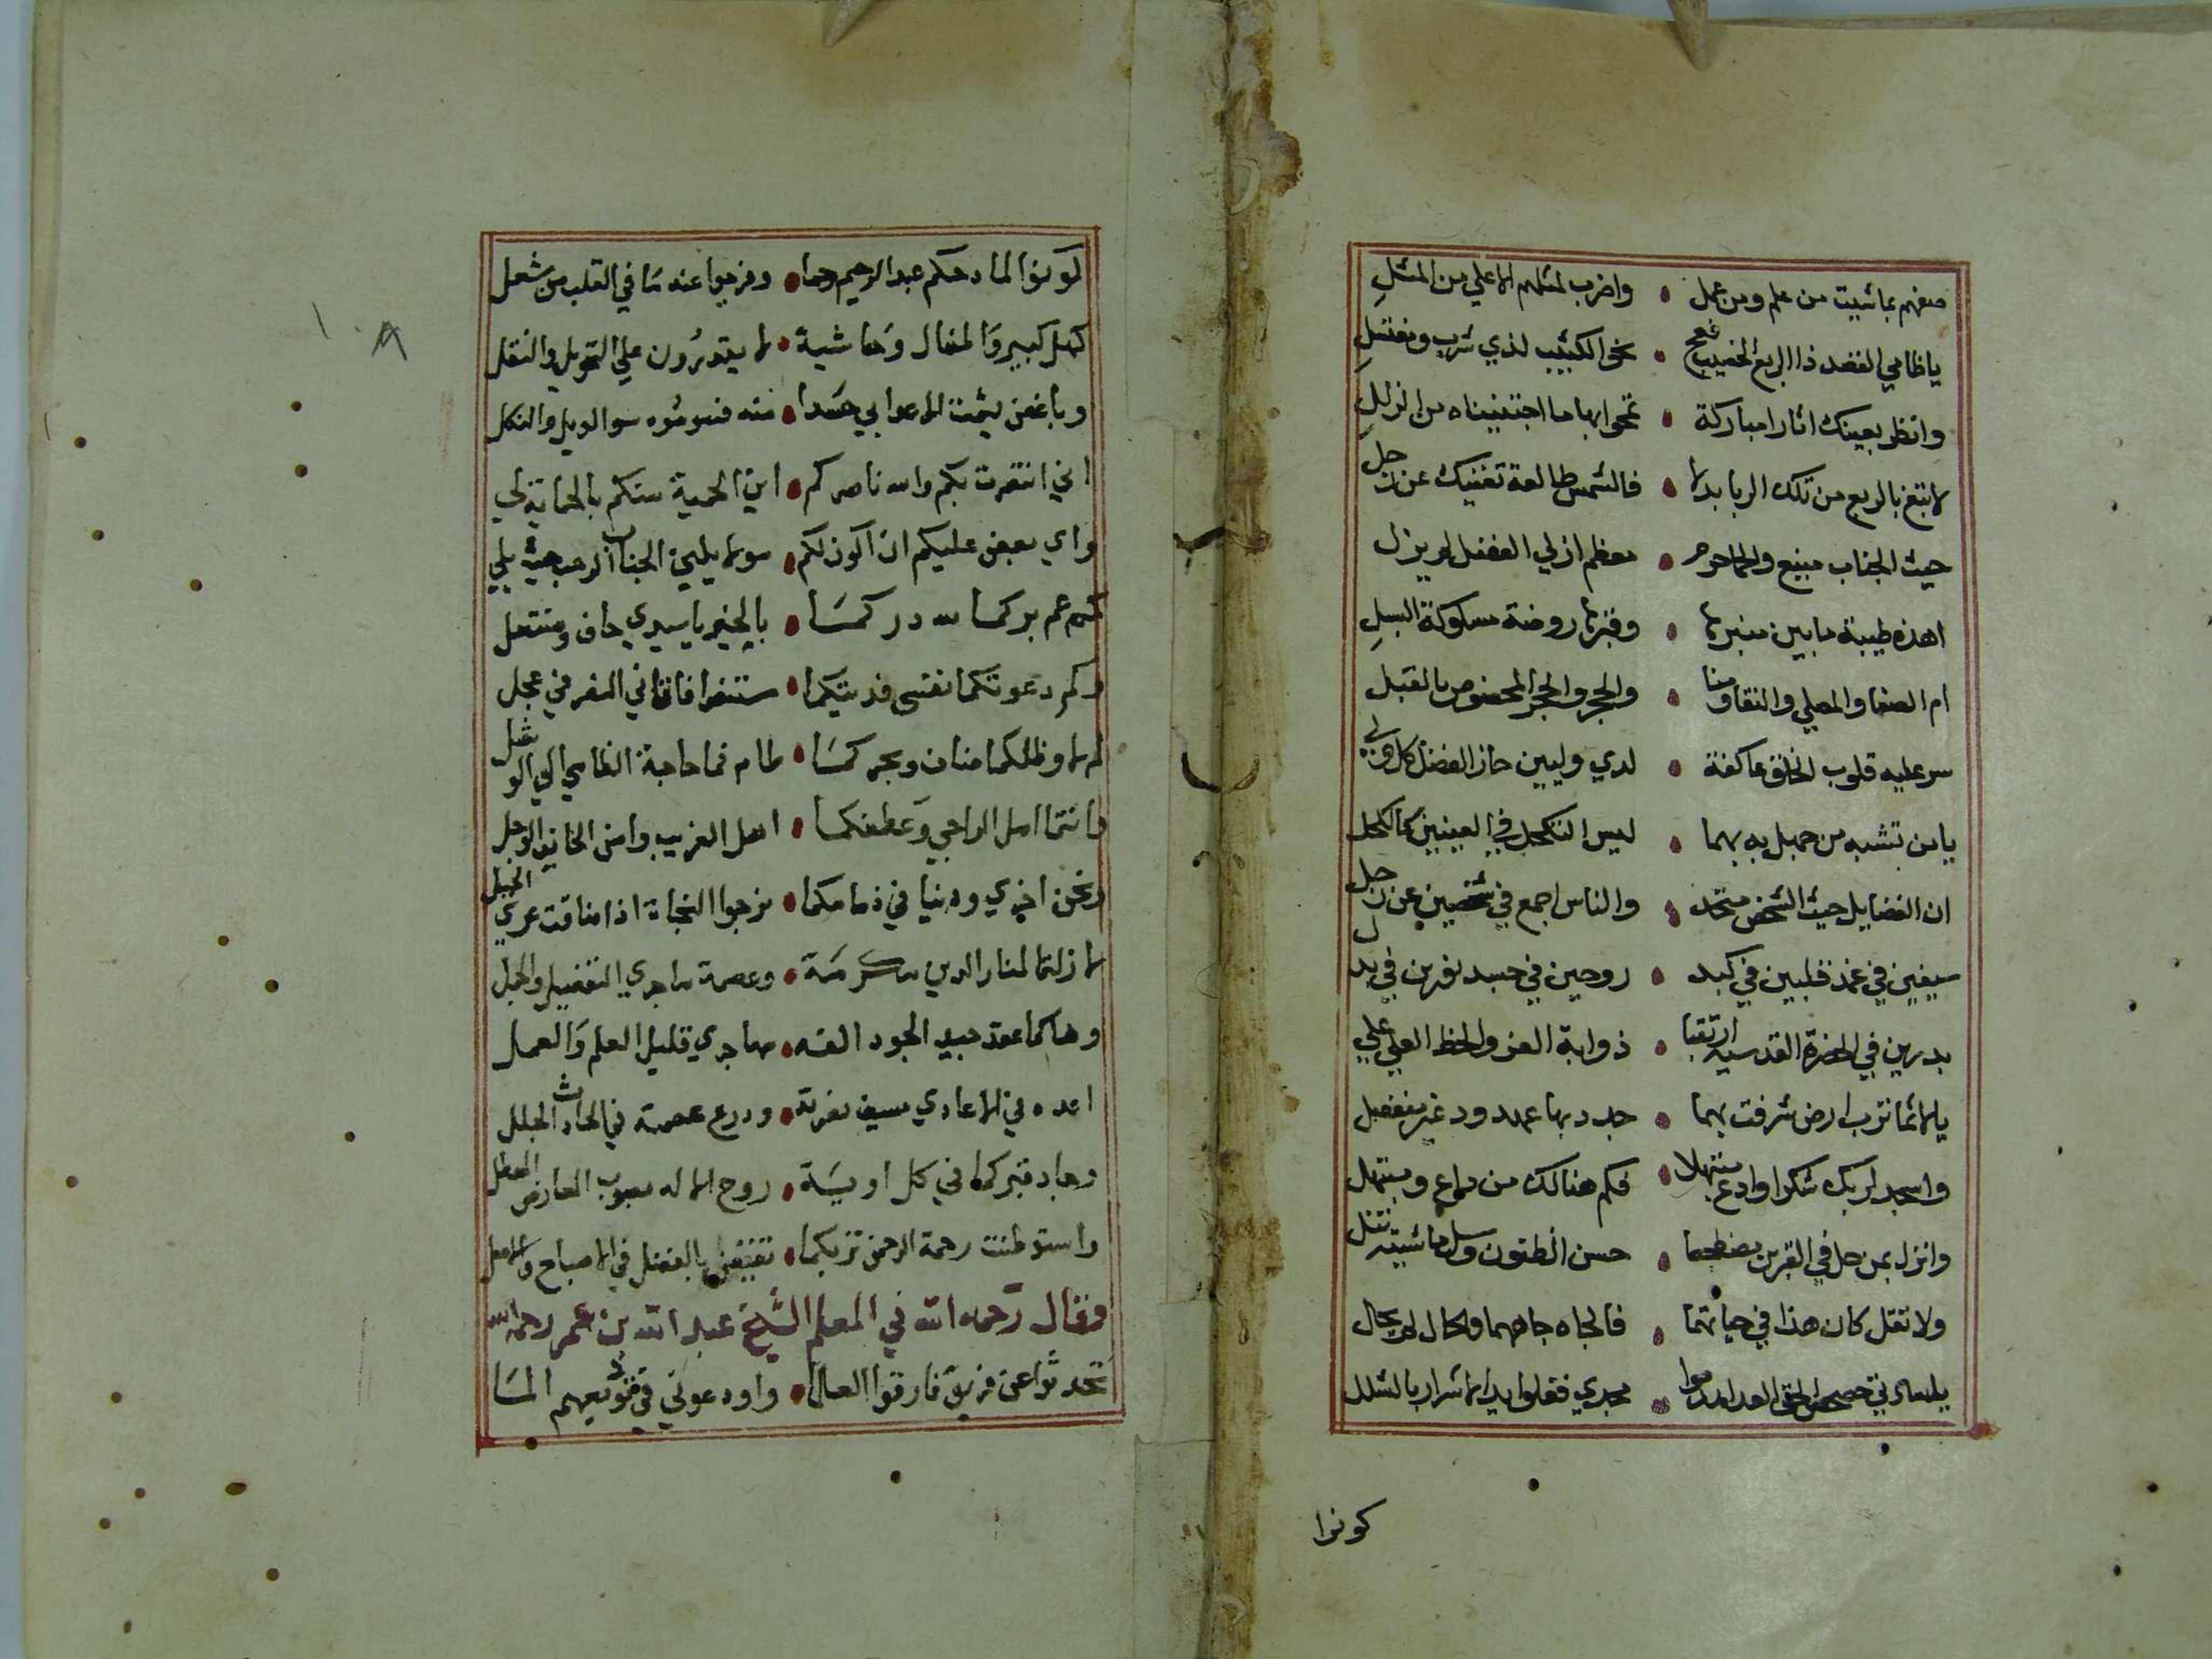 صفهم بما شيت من علم ومن عمل • واضرب لمثلهم الاعلي من المثل
يا ظامي القصد ذا الربع الخصيب فعج • نحو الكثيب لذي شرب ومغتسل
وانظر بعينك اثارا مباركة • تمحوا بها ما اجتنيناه من الزلل
لا تبتغ بالربع من تلك الربا بدلا • فالشمس طالعة تغنيك عن زحل
حيث الجناب منيع والحما حرم • معظم ازلي الفضل لم يزل
اهذه طيبة ما بين منبرها • وقبرها روضة مسكوكة السبل
ام الصفا والمصلي والنقا ومنا • والحجر والحجر المخصوص بالقبل
سر عليه قلوب الخلق عاكفة • لدي وليين حاز الفضل كل ولي
يا من تشبه من جهل به بهما • ليس التكحل في العينين كالكحل
ان الفضايل حيث الشخص متحد • والناس اجمع في شخصين عن رجل
سيفين في غمد قلبين في كبد • روحين في جسد نفرين في بدل
بدرين في الحضرة القدسية ارتقيا • ذوابة العز والحظ العلي علي
يا لاثما ترب ارض شرفت بهما • جدد بها عهد ود غير منفصل
واسجد لربك شكرا وادع مبتهلا • فكم هنالك من داع ومبتهل
وانزل بمن حل في القبرين مضطجعا • حسن الظنون وسل ما شيت تنل
ولا تقل كان هذا في حياتهما • فالجاه جاههما والحال لم يحال
يا سادتي حصحص الحق العدا هدموا • مجدي فغلوا يد الاشرار بالشلل
كونوا
١٠٨
كونوا لمادحكم عبد الرحيم حما • وفرجوا عنه ما في القلب من شغل
كهل كبير والمفال وحاشية • لا يقدرون علي التحويل والنقل
وباغض يشمت الاعدا بي حسدا • منه فسوموه سو الويل والنكل
اني انتصرت بكم والله ناصركم • اين الحمية منكم بالحماية لي
واي بعض عليكم ان اكون لكم • مولا يلين الجناب الرحب حيث يلي
كم عم بركما لله دركما • بالخير يا سيدي حاف ومنتعل
وكم دعوتكما نفسي فديتكما • ستنفرا فاتاني النصر في عجل
لم لا وظلكما ضاف وبحركما • طام فما حاجة الظامي الي الوشل
فانتما امل الراجي وعطفكما • اهل الغريب وامن الخايف الوجل
ونحن اخري ودنيا في ذمامكما • نرجوا النجاة اذا ضاقت عري الحيل
لا زلتما لمنار الدين مكرمة • وعصمة مهاجري التفضيل والجمل
وهاكما عقد جيد الجود الفه • مهاجري قليل العلم والعمل
ايده في الاعادي بسيف نصرته • ودرع عصمته في الحادث الجلل
وجاد قبركما في كل اونة • روح الاله بصوب العارض الهطل
واستوطنت رحمة الرحمن تربكما • تفيض بالفضل في الاصباح والاصل
وقال رحمه الله في المعلم الشيخ عبد الله بن عمر رحمه الله
تحدثوا عن فريق فارقوا العلما • واودعوني في توديعهم الما